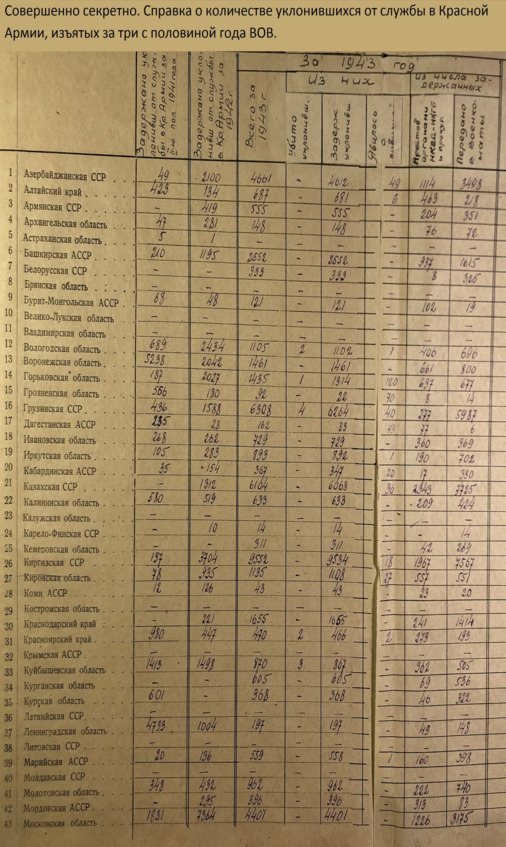 Совершенно секретно. Справка о количестве уклонившихся от службы в Красной
Армии, изъятых за три с половиной года ВОВ.
За 1943 год
Из них
из числа за-
держанных
Задержано ук
лонивш от служ
бы в Кр Армии за
пол. 1941 года
Задержано укло
нивш от службы
в Кр Армии за
1942 г.
Всего за
1943 г.
Убито
уклонивш.
Задерж.
уклонивш
Явилось
органами
НКВД-НКГБ
и прокур.
Передано
в военко-
маты
1 Азербайджанская ССР 49 2100 4661 - 4612 49 1114 3498
2 Алтайский край 423 134 687 - 681 6 463 218
3 Армянская ССР - 419 555 - 555 - 204 351
4 Архангельская область 47 231 148 - 148 - 76 72
5 Астраханская область 5 1 - - - - - -
6 Башкирская АССР 210 1195 2552 - 2552 - 937 1615
7 Белорусская ССР - - 333 - 333 - 8 325
8 Брянская область - - - - - - - -
9 Бурят-Монгольская АССР 68 48 121 - 121 - 102 19
10 Велико-Лукская область - - - - - - - -
11 Владимирская область - - - - - - - -
12 Вологодская область 689 2434 1105 2 1102 1 406 696
13 Воронежская область 5238 2042 1461 - 1461 - 661 800
14 Горьковская область 137 2027 1435 1 1314 120 637 677
15 Грозненская область 556 130 92 - 22 70 8 14
16 Грузинская ССР 436 1588 6308 4 6264 40 277 5987
17 Дагестанская АССР 235 23 162 - 83 77 6
18 Ивановская область 268 262 729 - 729 - 360 369
19 Иркутская область 105 283 893 - 892 1 190 702
20 Кабардинская АССР 35 154 367 - 347 20 17 330
21 Казахская ССР - 1312 6104 - 6068 36 2343 3725
22 Калининская область 580 519 633 - 633 - 209 424
23 Калужская область - - - - - - - -
24 Карело-Финская ССР - 10 14 - 14 - - 14
25 Кемеровская область - - 311 - 311 - 42 269
26 Киргизская ССР 137 3704 9552 - 9534 18 1967 7567
27 Кировская область 78 935 1135 - 1108 27 557 551
28 Коми АССР 12 126 43 - 43 - 23 20
29 Костромская область - - - - - - - -
30 Краснодарский край - 221 1655 - 1655 - 241 1414
31 Красноярский край 980 447 470 2 466 2 273 193
32 Крымская АССР - - - - - - - -
33 Куйбышевская область 1413 1498 870 3 867 - 362 505
34 Курганская область - - 605 - 605 - 69 536
35 Курская область 601 - 368 - 368 - 46 322
36 Латвийская ССР - - - - - - - -
37 Ленинградская область 4733 1004 197 - 197 - 49 148
38 Литовская ССР - - - - - - - -
39 Марийская АССР 20 136 559 - 558 1 160 398
40 Молдавская ССР - - - - - - - -
41 Молотовская область 343 432 962 - 962 - 222 740
42 Мордовская АССР - 295 396 - 396 - 313 83
43 Московская область 1831 7364 4401 - 4401 - 1226 3175